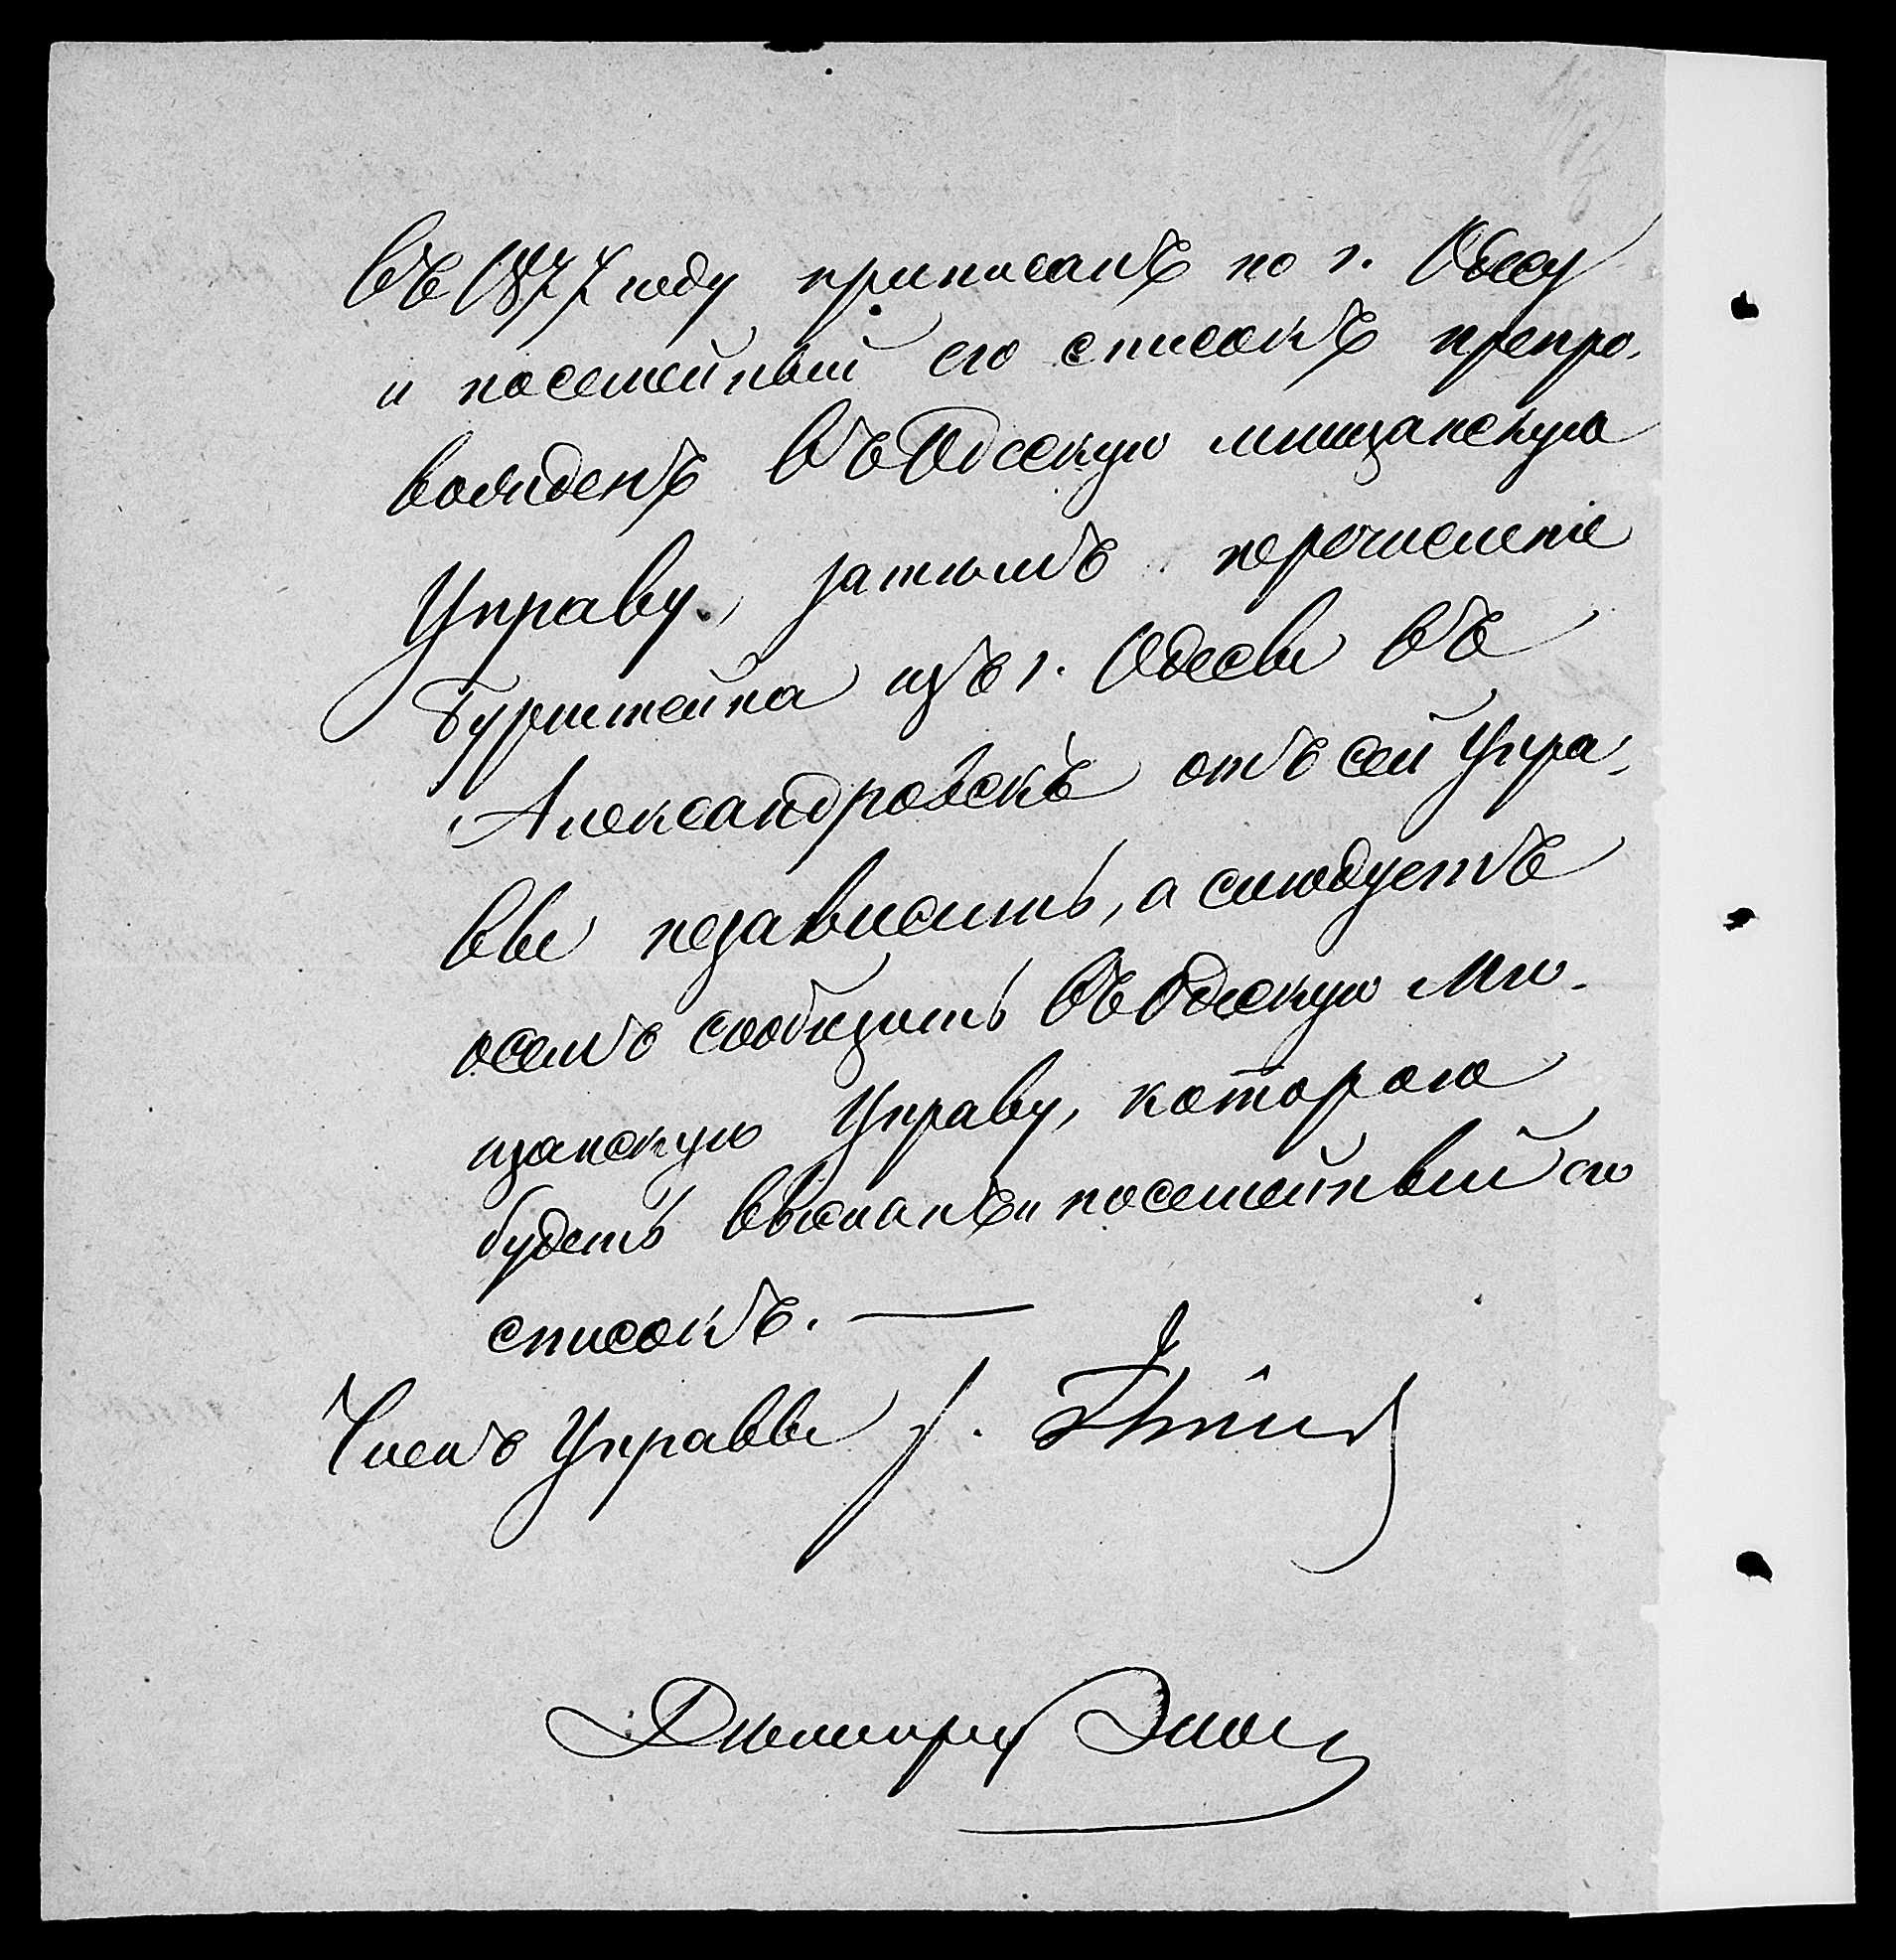 въ 1877 году приписанъ по г. Одессу
и посемейный его списокъ препро-
вожденъ въ Одесскую мѣщанскую
Управу, затѣмъ перечисленіе
Бурштейна изъ г. Одессы въ
Александровскъ отъ сей Упра-
вы независитъ, а слѣдуетъ
осемъ сообщить въ Одесскую Мѣ-
щанскую Управу, которою
будетъ высланъ и посемейный его
списокъ. —
Членъ Управы